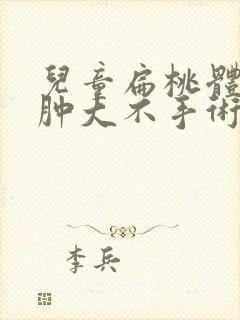 兒童扁桃體
肿大不手術
李兵